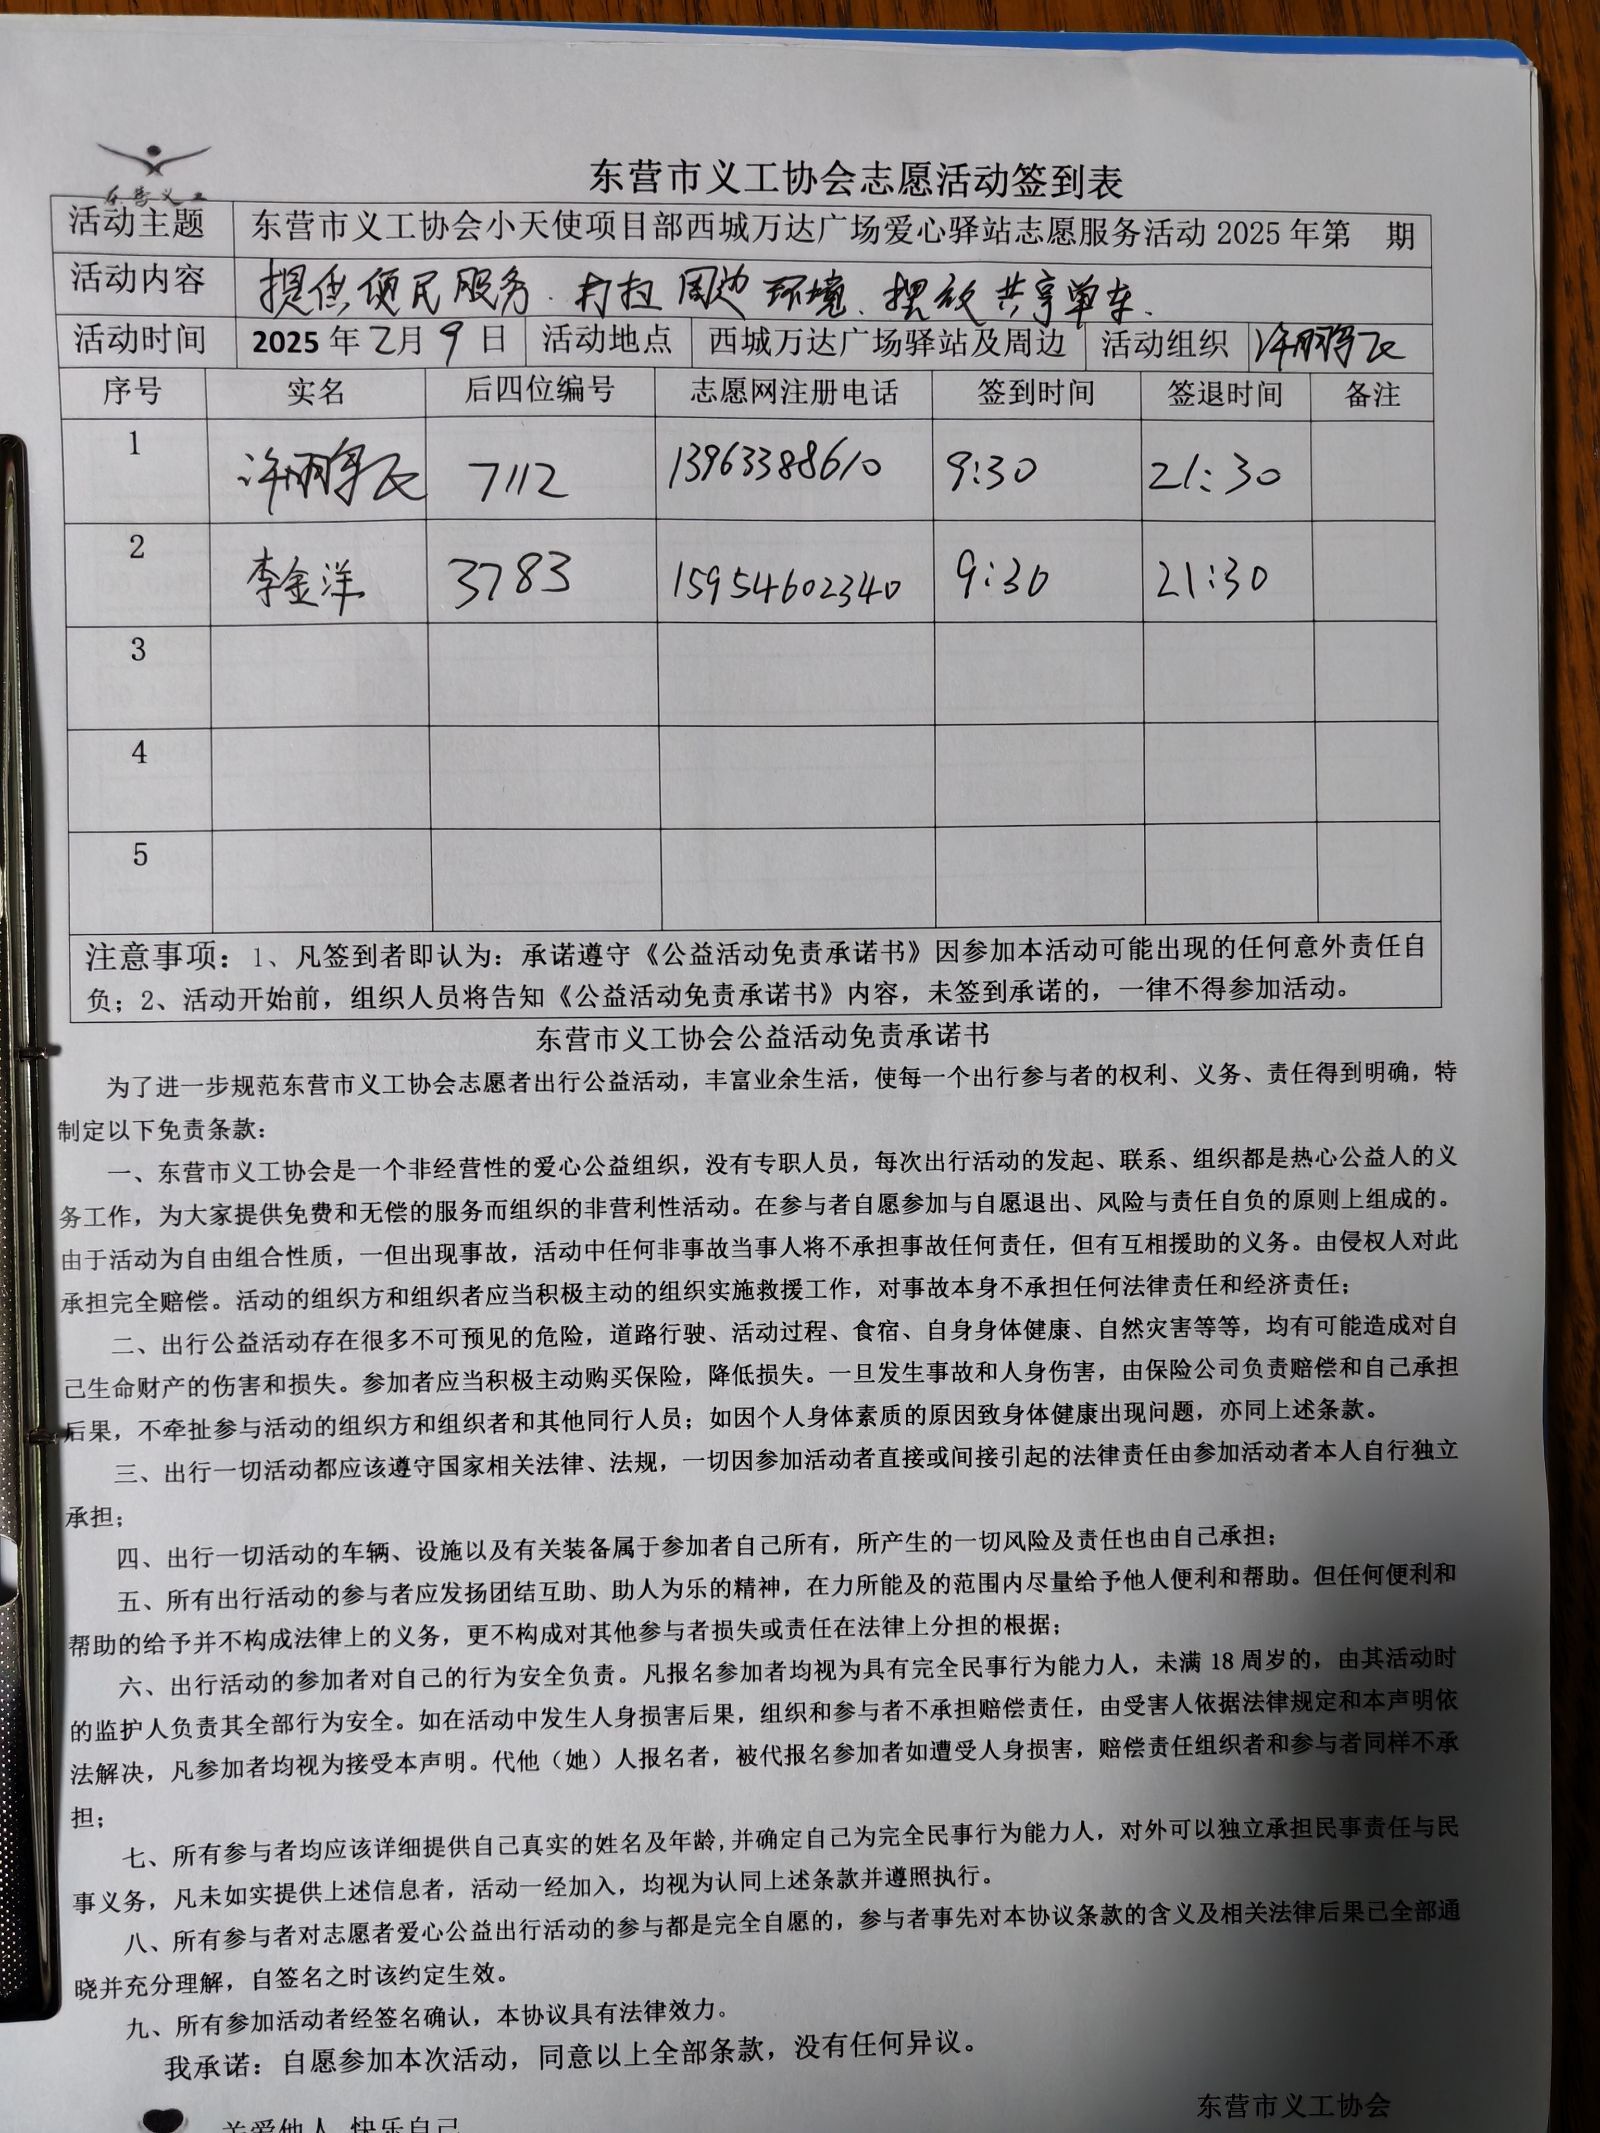 东营义工
东营市义工协会志愿活动签到表
活动主题 东营市义工协会小天使项目部西城万达广场爱心驿站志愿服务活动 2025 年第 期
活动内容 提供便民服务、打扫周边环境、摆放共享单车.
活动时间 2025 年 2月 9 日 活动地点 西城万达广场驿站及周边 活动组织 许
序号 实名 后四位编号 志愿网注册电话 签到时间 签退时间 备注
1 许 7112 13963388610 9:30 21:30
2 李金洋 3783 15954602340 9:30 21:30
3
4
5
注意事项：1、凡签到者即认为：承诺遵守《公益活动免责承诺书》因参加本活动可能出现的任何意外责任自
负；2、活动开始前，组织人员将告知《公益活动免责承诺书》内容，未签到承诺的，一律不得参加活动。
东营市义工协会公益活动免责承诺书
为了进一步规范东营市义工协会志愿者出行公益活动，丰富业余生活，使每一个出行参与者的权利、义务、责任得到明确，特
制定以下免责条款：
一、东营市义工协会是一个非经营性的爱心公益组织，没有专职人员，每次出行活动的发起、联系、组织都是热心公益人的义
务工作，为大家提供免费和无偿的服务而组织的非营利性活动。在参与者自愿参加与自愿退出、风险与责任自负的原则上组成的。
由于活动为自由组合性质，一但出现事故，活动中任何非事故当事人将不承担事故任何责任，但有互相援助的义务。由侵权人对此
承担完全赔偿。活动的组织方和组织者应当积极主动的组织实施救援工作，对事故本身不承担任何法律责任和经济责任；
二、出行公益活动存在很多不可预见的危险，道路行驶、活动过程、食宿、自身身体健康、自然灾害等等，均有可能造成对自
己生命财产的伤害和损失。参加者应当积极主动购买保险，降低损失。一旦发生事故和人身伤害，由保险公司负责赔偿和自己承担
后果，不牵扯参与活动的组织方和组织者和其他同行人员；如因个人身体素质的原因致身体健康出现问题，亦同上述条款。
三、出行一切活动都应该遵守国家相关法律、法规，一切因参加活动者直接或间接引起的法律责任由参加活动者本人自行独立
承担；
四、出行一切活动的车辆、设施以及有关装备属于参加者自己所有，所产生的一切风险及责任也由自己承担；
五、所有出行活动的参与者应发扬团结互助、助人为乐的精神，在力所能及的范围内尽量给予他人便利和帮助。但任何便利和
帮助的给予并不构成法律上的义务，更不构成对其他参与者损失或责任在法律上分担的根据；
六、出行活动的参加者对自己的行为安全负责。凡报名参加者均视为具有完全民事行为能力人，未满 18 周岁的，由其活动时
的监护人负责其全部行为安全。如在活动中发生人身损害后果，组织和参与者不承担赔偿责任，由受害人依据法律规定和本声明依
法解决，凡参加者均视为接受本声明。代他（她）人报名者，被代报名参加者如遭受人身损害，赔偿责任组织者和参与者同样不承
担；
七、所有参与者均应该详细提供自己真实的姓名及年龄,并确定自己为完全民事行为能力人，对外可以独立承担民事责任与民
事义务，凡未如实提供上述信息者，活动一经加入，均视为认同上述条款并遵照执行。
八、所有参与者对志愿者爱心公益出行活动的参与都是完全自愿的，参与者事先对本协议条款的含义及相关法律后果已全部通
晓并充分理解，自签名之时该约定生效。
九、所有参加活动者经签名确认，本协议具有法律效力。
我承诺：自愿参加本次活动，同意以上全部条款，没有任何异议。
东营市义工协会
关爱他人 快乐自己